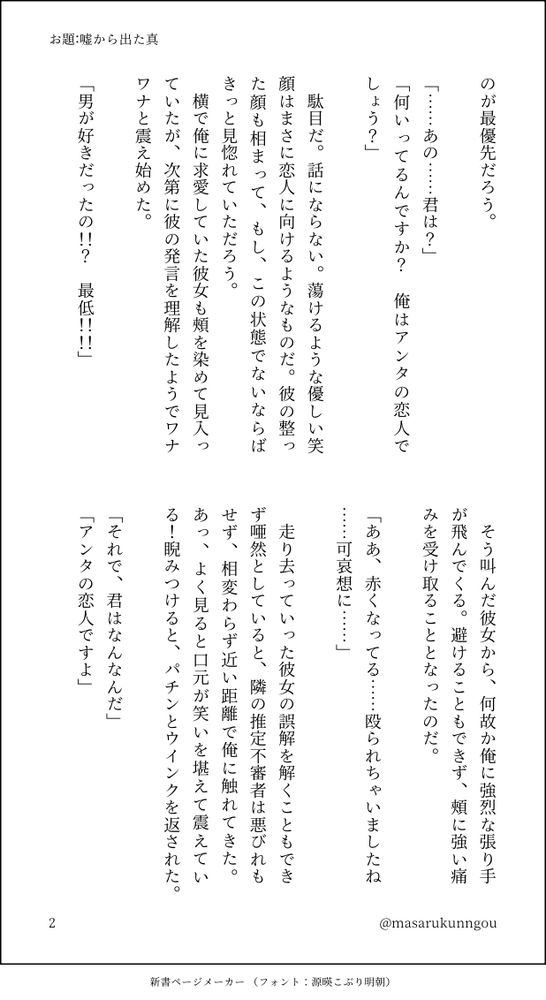 お題:嘘から出た真
のが最優先だろう。
「……あの……君は？」
「何いってるんですか？　俺はアンタの恋人で
しょう？」
　駄目だ。話にならない。蕩けるような優しい笑
顔はまさに恋人に向けるようなものだ。彼の整っ
た顔も相まって、もし、この状態でないならば
きっと見惚れていただろう。
　横で俺に求愛していた彼女も頬を染めて見入っ
ていたが、次第に彼の発言を理解したようでワナ
ワナと震え始めた。
「男が好きだったの!!？　最低!!!!」
　そう叫んだ彼女から、何故か俺に強烈な張り手
が飛んでくる。避けることもできず、頬に強い痛
みを受け取ることとなったのだ。
「ああ、赤くなってる……殴られちゃいましたね
……可哀想に……」
　走り去っていった彼女の誤解を解くこともでき
ず唖然としていると、隣の推定不審者は悪びれも
せず、相変わらず近い距離で俺に触れてきた。
あっ、よく見ると口元が笑いを堪えて震えてい
る！睨みつけると、パチンとウインクを返された。
「それで、君はなんなんだ」
「アンタの恋人ですよ」
2
@masarukunngou
新書ページメーカー （フォント：源暎こぶり明朝）